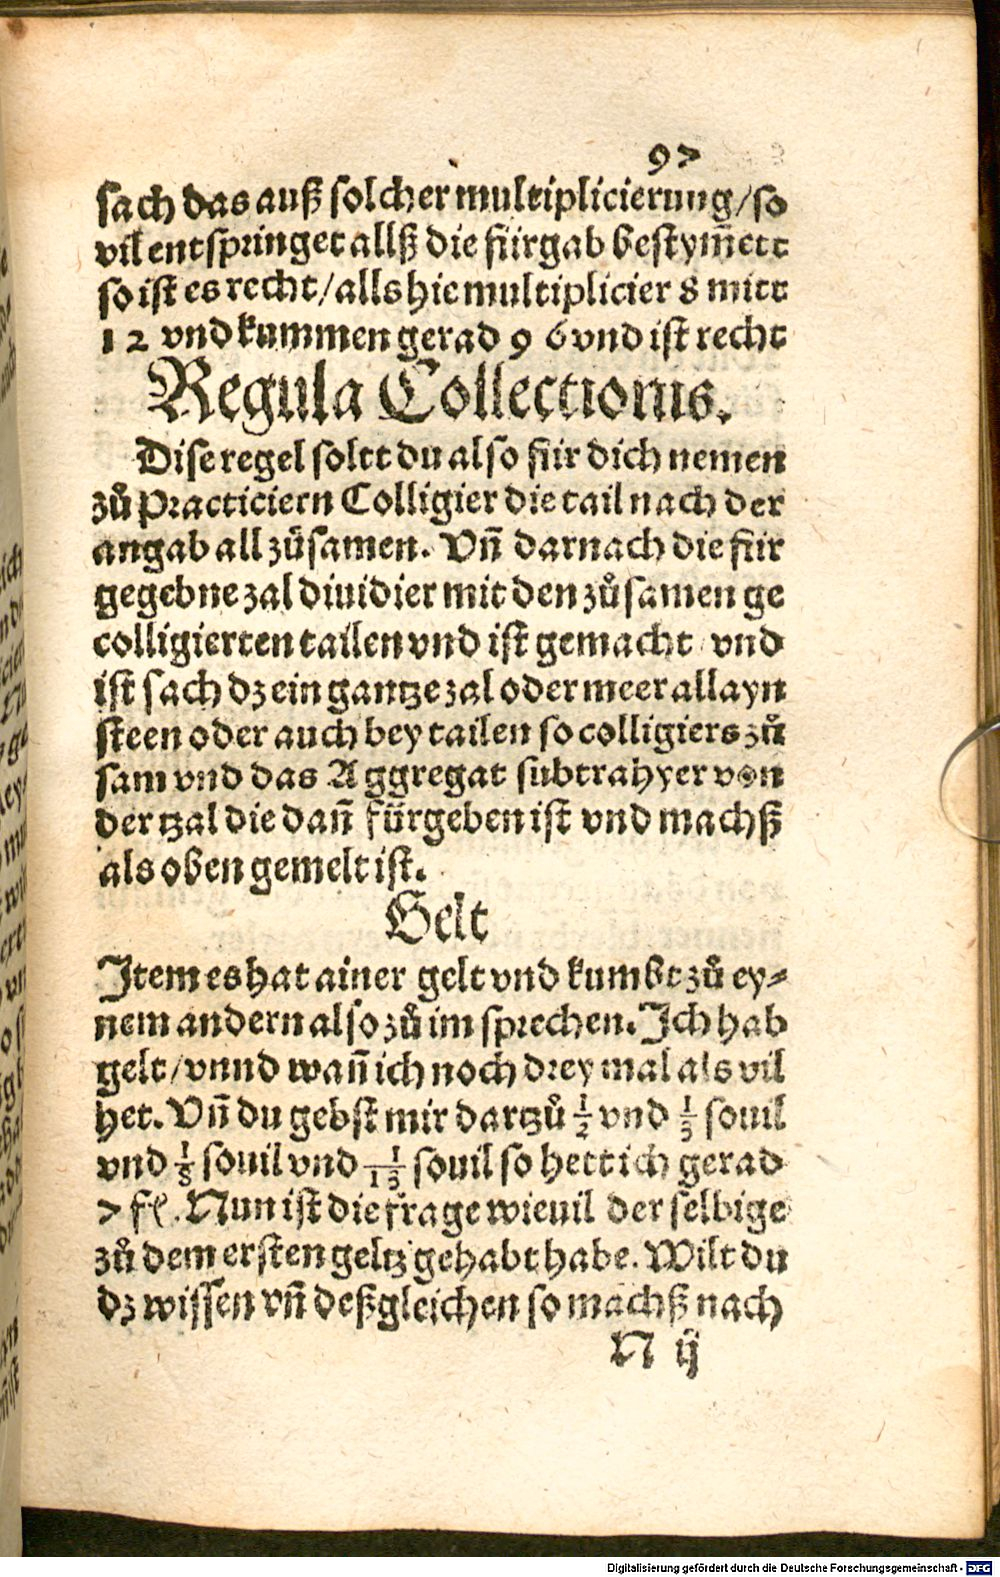 97
sach das auß solcher multiplicierung/so
vil entspringet allß die fürgab bestym̃ett
so ist es recht/alls hie multiplicier 8 mitt
12 vnd kummen gerad 96 vnd ist recht
Regula Collectionis.
Dise regel soltt du also für dich nemen
zů Practiciern Colligier die tail nach der
angab all zůsamen. Vñ darnach die für
gegebne zal diuidier mit den zůsamen ge
colligierten tailen vnd ist gemacht/vnd
ist sach dz ein gantze zal oder meer allayn
steen oder auch bey tailen so colligiers zů
sam vnd das Aggregat subtrahyer von
der tzal die dañ fürgeben ist vnd machß
als oben gemelt ist.
Gelt
Item es hat ainer gelt vnd kumbt zů ey⸗
nem andern also zů im sprechen. Ich hab
gelt/vnnd wañ ich noch drey mal als vil
het. Vñ du gebst mir dartzů 1/2 vnd 1/3 souil
vnd 1/8 souil vnd 1/15 souil so hett ich gerad
7 fl. Nun ist die frage wieuil der selbige
zů dem ersten geltz gehabt habe. Wilt du
dz wissen vñ deßgleichen so machß nach
N ij
Digitalisierung gefördert durch die Deutsche Forschungsgemeinschaft - DFG